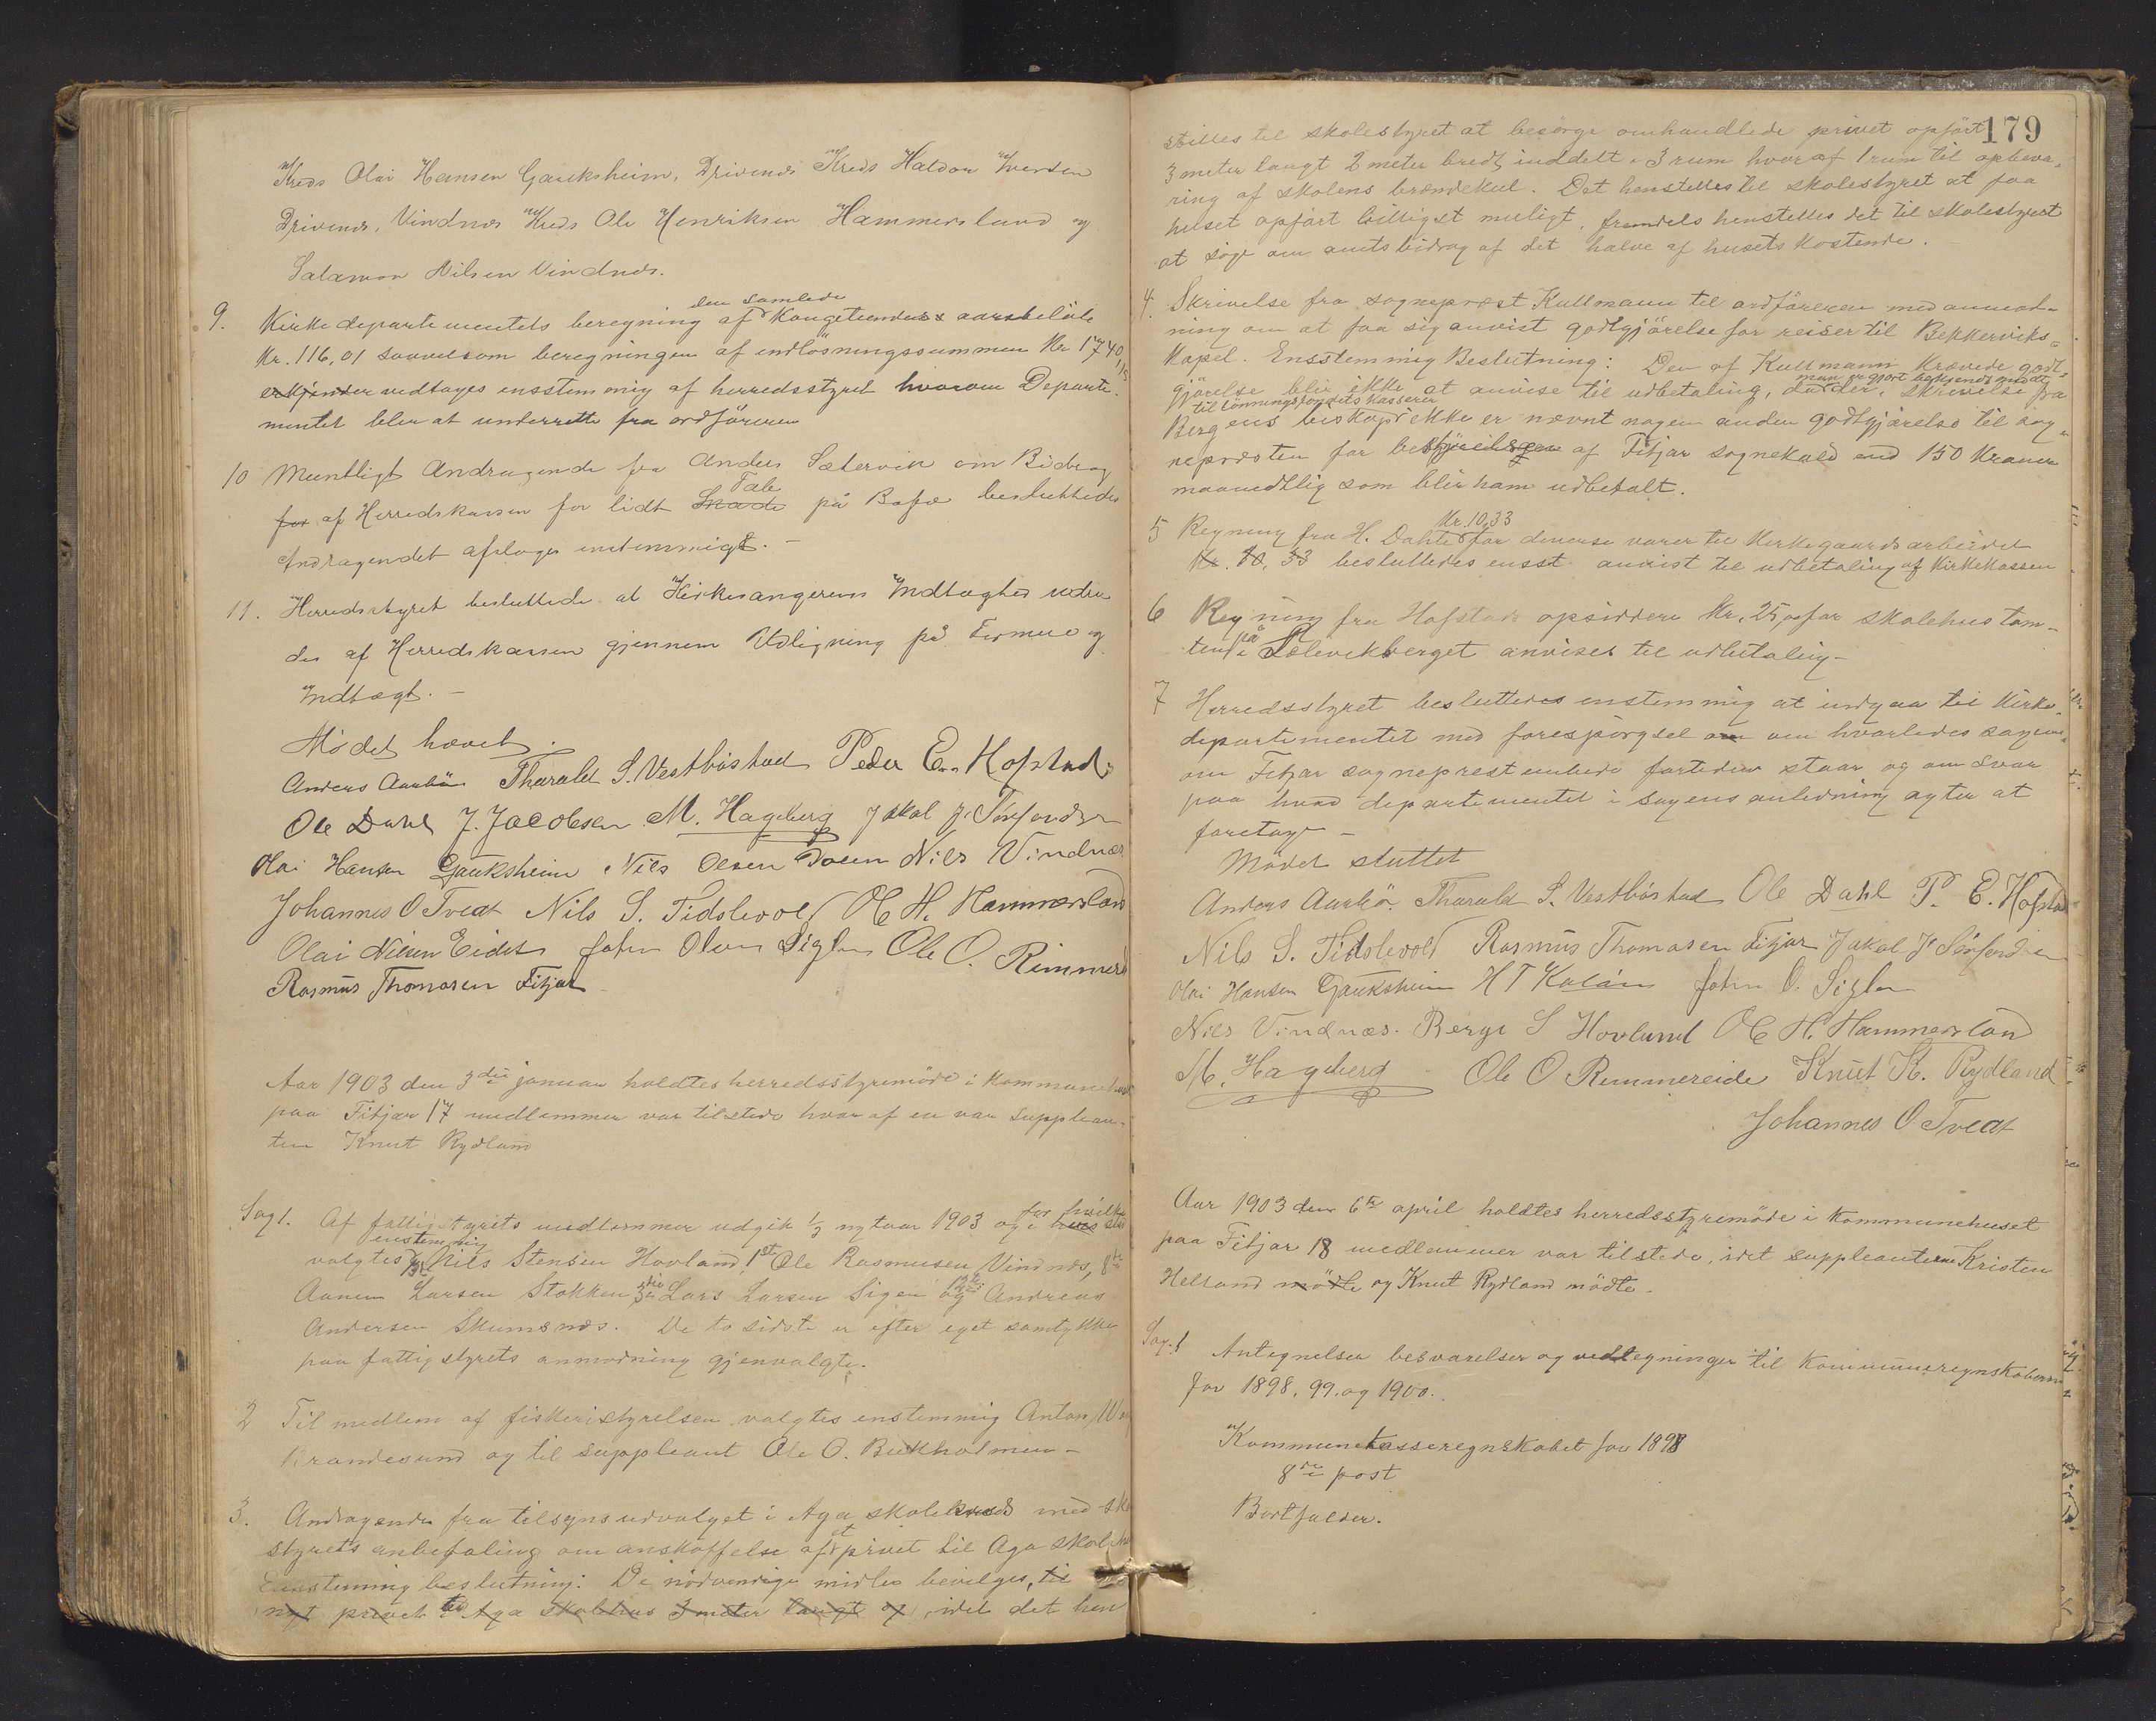 Kreds Olai Hansen Gauksheim, Drivenes Kreds Haldor Iversen
Drivenes, Vindnes Kreds Ole Henriksen Hammersland og
Salamon Nilsen Vindnes.
9. Kirkedepartementets beregning af den samlede Kongetiendes aarsbeløb
Kr. 116,01 saavelsom beregningen af indløsningssummen Kr 1740,15
erkjender vedtages ensstemmig af herredsstyret hvorom Departe-
mentet blir at underrette fra ordføreren
10 Mundtligt Andragende fra Anders Sætervik om Bidrag
for af Herredskassen for lidt Skade Tab på Baf besluttedes
Andragendet afslages enstemmigt. —
11. Herredsstyret besluttede at Kirkesangerens Indtægter udre
des af Herredskassen gjennem Udligning på Formue og
Indtægt. —
Mødet hævet.
Anders Aarbø Tharald S. Vestbøstad Peder E. Hofstad
Ole Dahl J. Jacobsen M. Hageberg Jakob J. Sørfonden
Olai Hansen Gauksheim Nils Olsen Nils Vindnæs
Johannes O Tvedt Nils S. Tidslevold O H. Hammersland
Olai Nilsen Eidet John Olsen Sigl Ole O. Rimmere
Rasmus Thomasen Fitjar
Aar 1903 den 3die januar holdtes herredsstyremøde i Kommunehuset
paa Fitjar 17 medlemmer var tilstede hvoraf en var supplean-
ten Knut Rydland
Sag 1. Af fattigstyrets medlemmer udgik 1/3 nytaar 1903 og for hvilke i deres sted
valgtes enstemmig Nils Stensen Hovland, 1st Ole Rasmussen Vindnes, 8de
Aamen Larsen Stokken 3die Lars Larsen Sigen og 12te Andreas
Andersen Skumsnes. De to sidste er efter eget samtykke
paa fattigstyrets anmodning gjenvalgte.
2 Til medlem af fiskeristyrelsen valgtes enstemmig Anton
Brandesund og til suppleant Ole O. Bukholmen —
3. Andragende fra tilsynsudvalget i Aga skolekreds med sko
styrets anbefaling om anskaffelse af et privet til Aga skolehu
Ensstemmig beslutning: De nødvendige midler bevilges, til
nyt privet til Aga skolehus 3 meter langt og, idet det hen
179
stilles til skolestyret at besørge omhandlede privet opført
3 meter langt 2 meter bredt inddelt i 3 rum hvoraf 1 rum til opbeva-
ring af skolens brændekul. Det henstilles til skolestyret at faa
huset opført billigst muligt, fremdels henstilles det til skolestyret
at søge om amtsbidrag af det halve af husets kostende.
4. Skrivelse fra sogneprest Kullmann til ordføreren med anmod-
ning om at faa sig anvist godtgjørelse for reiser til Bekkerviks-
Kapel. Ensstemmig Beslutning: Den af Kullmann krævede godt-
gjørelse blir ikke at anvise til udbetaling, da der, man er gjort bekjendt med at, i skrivelse fra
Bergens biskop til lønningsfondets kasserer ikke er nævnt nogen anden godtgjørelse til sog-
nepræsten for bestyrelsen af Fitjar sognekald end 150 Kroner
maanedtlig som blir ham udbetalt.
5 Regning fra H. Dahle Kr. 10,33 for deverse varer til Kirkegaardsarbeidet
Kr. 10, 33 besluttedes ensst. anvist til udbetaling af Kirkekassen
6 Regning fra Hofstad opsiddere Kr. 25,00 for skolehustom-
ten på i Sælevikberget anvises til udbetaling —
7 Herredsstyret besluttedes enstemmig at indgaa til Kirke-
departementet med forespørgsel om om hvorledes sagen
om Fitjar sogneprestembede fortiden staar og om svar
paa hvad departementet i sagens anledning agter at
foretage —
Mødet sluttet
Anders Aarbø. Tharald S. Vestbøstad Ole Dahl P. E. Hofstad
Nils S. Tidslevold Rasmus Thomasen Fitjar Jakob J Sørfonden
Olai Hansen Gauksheim H T Koløen John O. Sigl
Nils Vindnæs. Berge S Hovland O H. Hammersland
M. Hageberg Ole O Rimmereide Knut K. Rydland
Johannes O Tvedt
Aar 1903 den 6te april holdtes herredsstyremøde i Kommunehuset
paa Fitjar 18 medlemmer var tilstede, idet suppleanterne Kristen
Helland mødte og Knut Rydland mødte.
Sag. 1 Antegnelser besvarelser og vedtegninger til Kommuneregnskaberne
for 1898, 99. og 1900.
Kommunekasseregnskabet for 1898
8de post
Bortfalder.